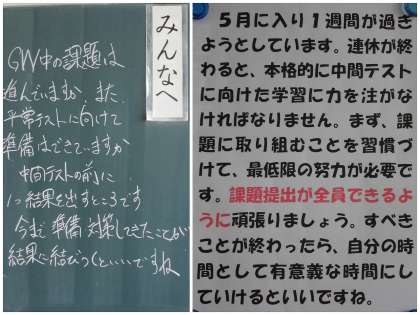 みんなへ
GW中の課題は
進んでいますか。また、
平常テストに向けて
準備はできていますか
中間テストの前に
1つ結果を出すところです
今まで準備対策してきたことが
結果に結びつくといいですね
5月に入り1週間が過ぎ
ようとしています。連休が終
わると、本格的に中間テスト
に向けた学習に力を注がな
ければなりません。まず、課
題に取り組むことを習慣づ
けて、最低限の努力が必要で
す。課題提出が全員できるよ
うに頑張りましょう。すべき
ことが終わったら、自分の時
間として有意義な時間にし
ていけるといいですね。